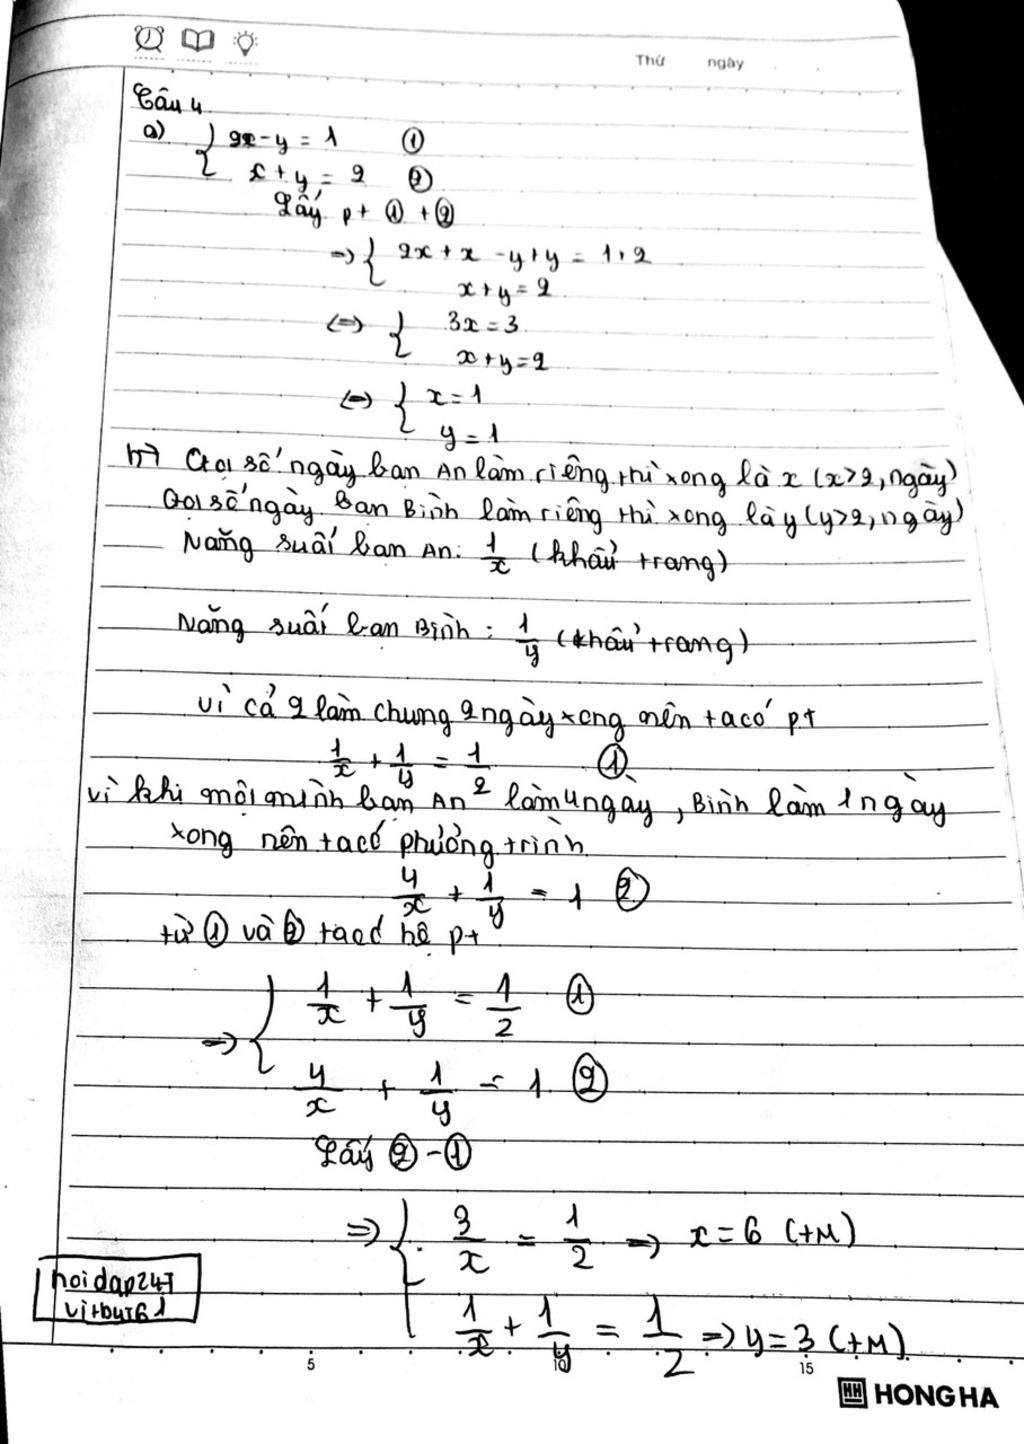 Thứ ngày
Câu 4
a) { 2x - y = 1 ①
x + y = 2 ②
Lấy pt ① + ②
=> { 2x + x - y + y = 1 + 2
x + y = 2
<=> { 3x = 3
x + y = 2
<=> { x = 1
y = 1
b) Gọi số ngày bạn An làm riêng thì xong là x (x>2, ngày)
Gọi số ngày bạn Bình làm riêng thì xong là y (y>2, ngày)
Năng suất bạn An: 1/x (khẩu trang)
Năng suất bạn Bình: 1/y (khẩu trang)
vì cả 2 làm chung 2 ngày xong nên ta có pt
1/x + 1/y = 1/2 ①
vì khi một mình bạn An làm 4 ngày, Bình làm 1 ngày
xong nên ta có phương trình
4/x + 1/y = 1 ②
từ ① và ② ta có hệ pt
=> { 1/x + 1/y = 1/2 ①
4/x + 1/y = 1 ②
Lấy ② - ①
=> { 3/x = 1/2 => x = 6 (tM)
1/x + 1/y = 1/2 => y = 3 (tM)
hoidap247
5 10 15
HH HONG HA